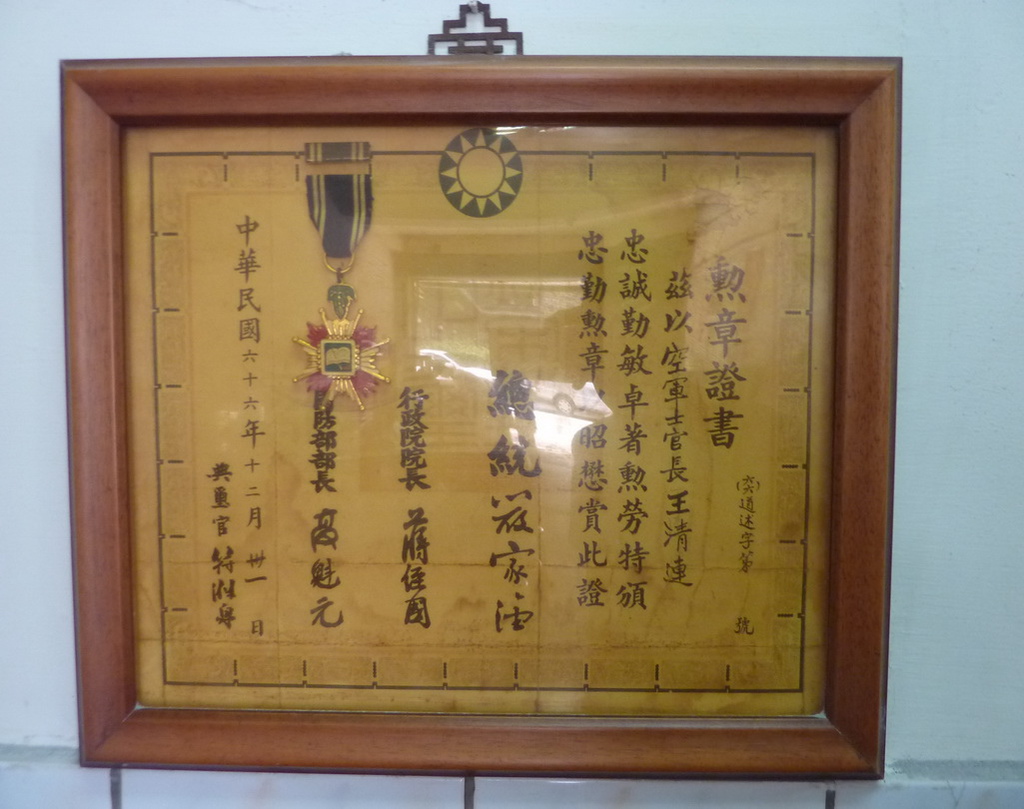 勲章證書
(六六)道述字第 號
茲以空軍士官長王清連
忠誠勤敏卓著勲勞特頒
忠勤勲章 昭懋賞此證
總統嚴家淦
行政院院長 蔣經國
防部部長 高魁元
中華民國六十六年十二月卅一日
典璽官